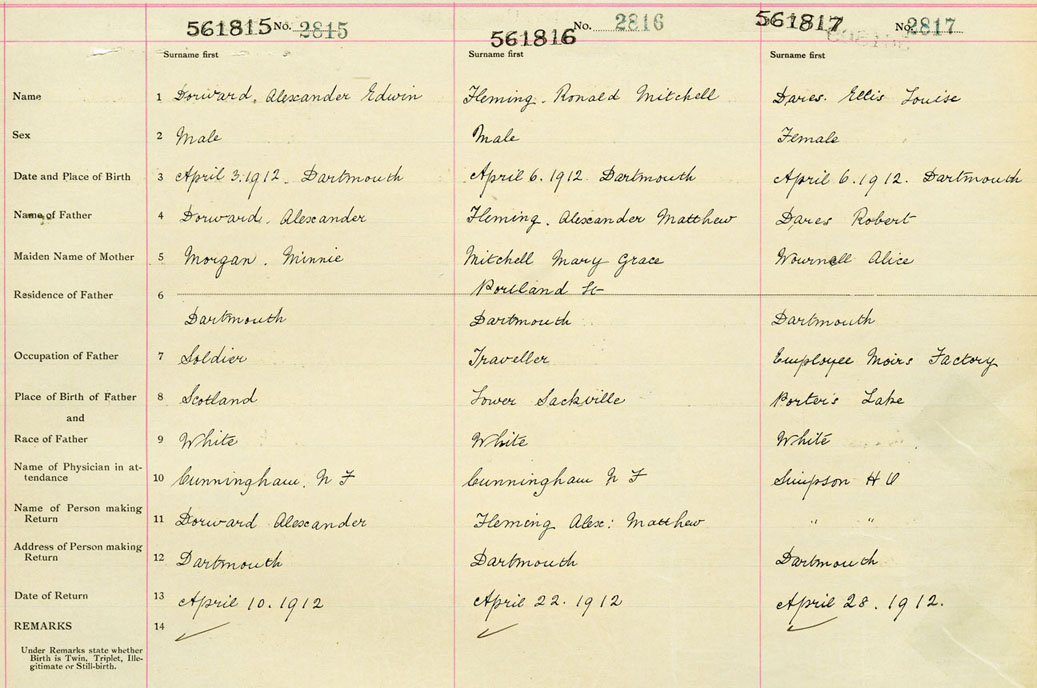 561815 No. 2815 561816 No. 2816 561817 No. 2817
Surname first Surname first Surname first
Name 1 Dorward, Alexander Edwin Fleming. Ronald Mitchell Dares. Ellis Louise
Sex 2 Male Male Female
Date and Place of Birth 3 April 3. 1912. Dartmouth April 6. 1912. Dartmouth April 6. 1912. Dartmouth
Name of Father 4 Dorward, Alexander Fleming. Alexander Matthew Dares Robert
Maiden Name of Mother 5 Morgan. Minnie Mitchell Mary Grace Wournell Alice
Portland St
Residence of Father 6
Dartmouth Dartmouth Dartmouth
Occupation of Father 7 Soldier Traveller Employee Moirs Factory
Place of Birth of Father 8 Scotland Lower Sackville Porter's Lake
and
Race of Father 9 White White White
Name of Physician in at-
tendance 10 Cunningham. N F Cunningham N F Simpson H
Name of Person making
Return 11 Dorward Alexander Fleming Alex: Matthew " "
Address of Person making
Return 12 Dartmouth Dartmouth Dartmouth
Date of Return 13 April 10. 1912 April 22. 1912 April 28. 1912.
REMARKS 14
Under Remarks state whether
Birth is Twin, Triplet, Ille-
gitimate or Still-birth.